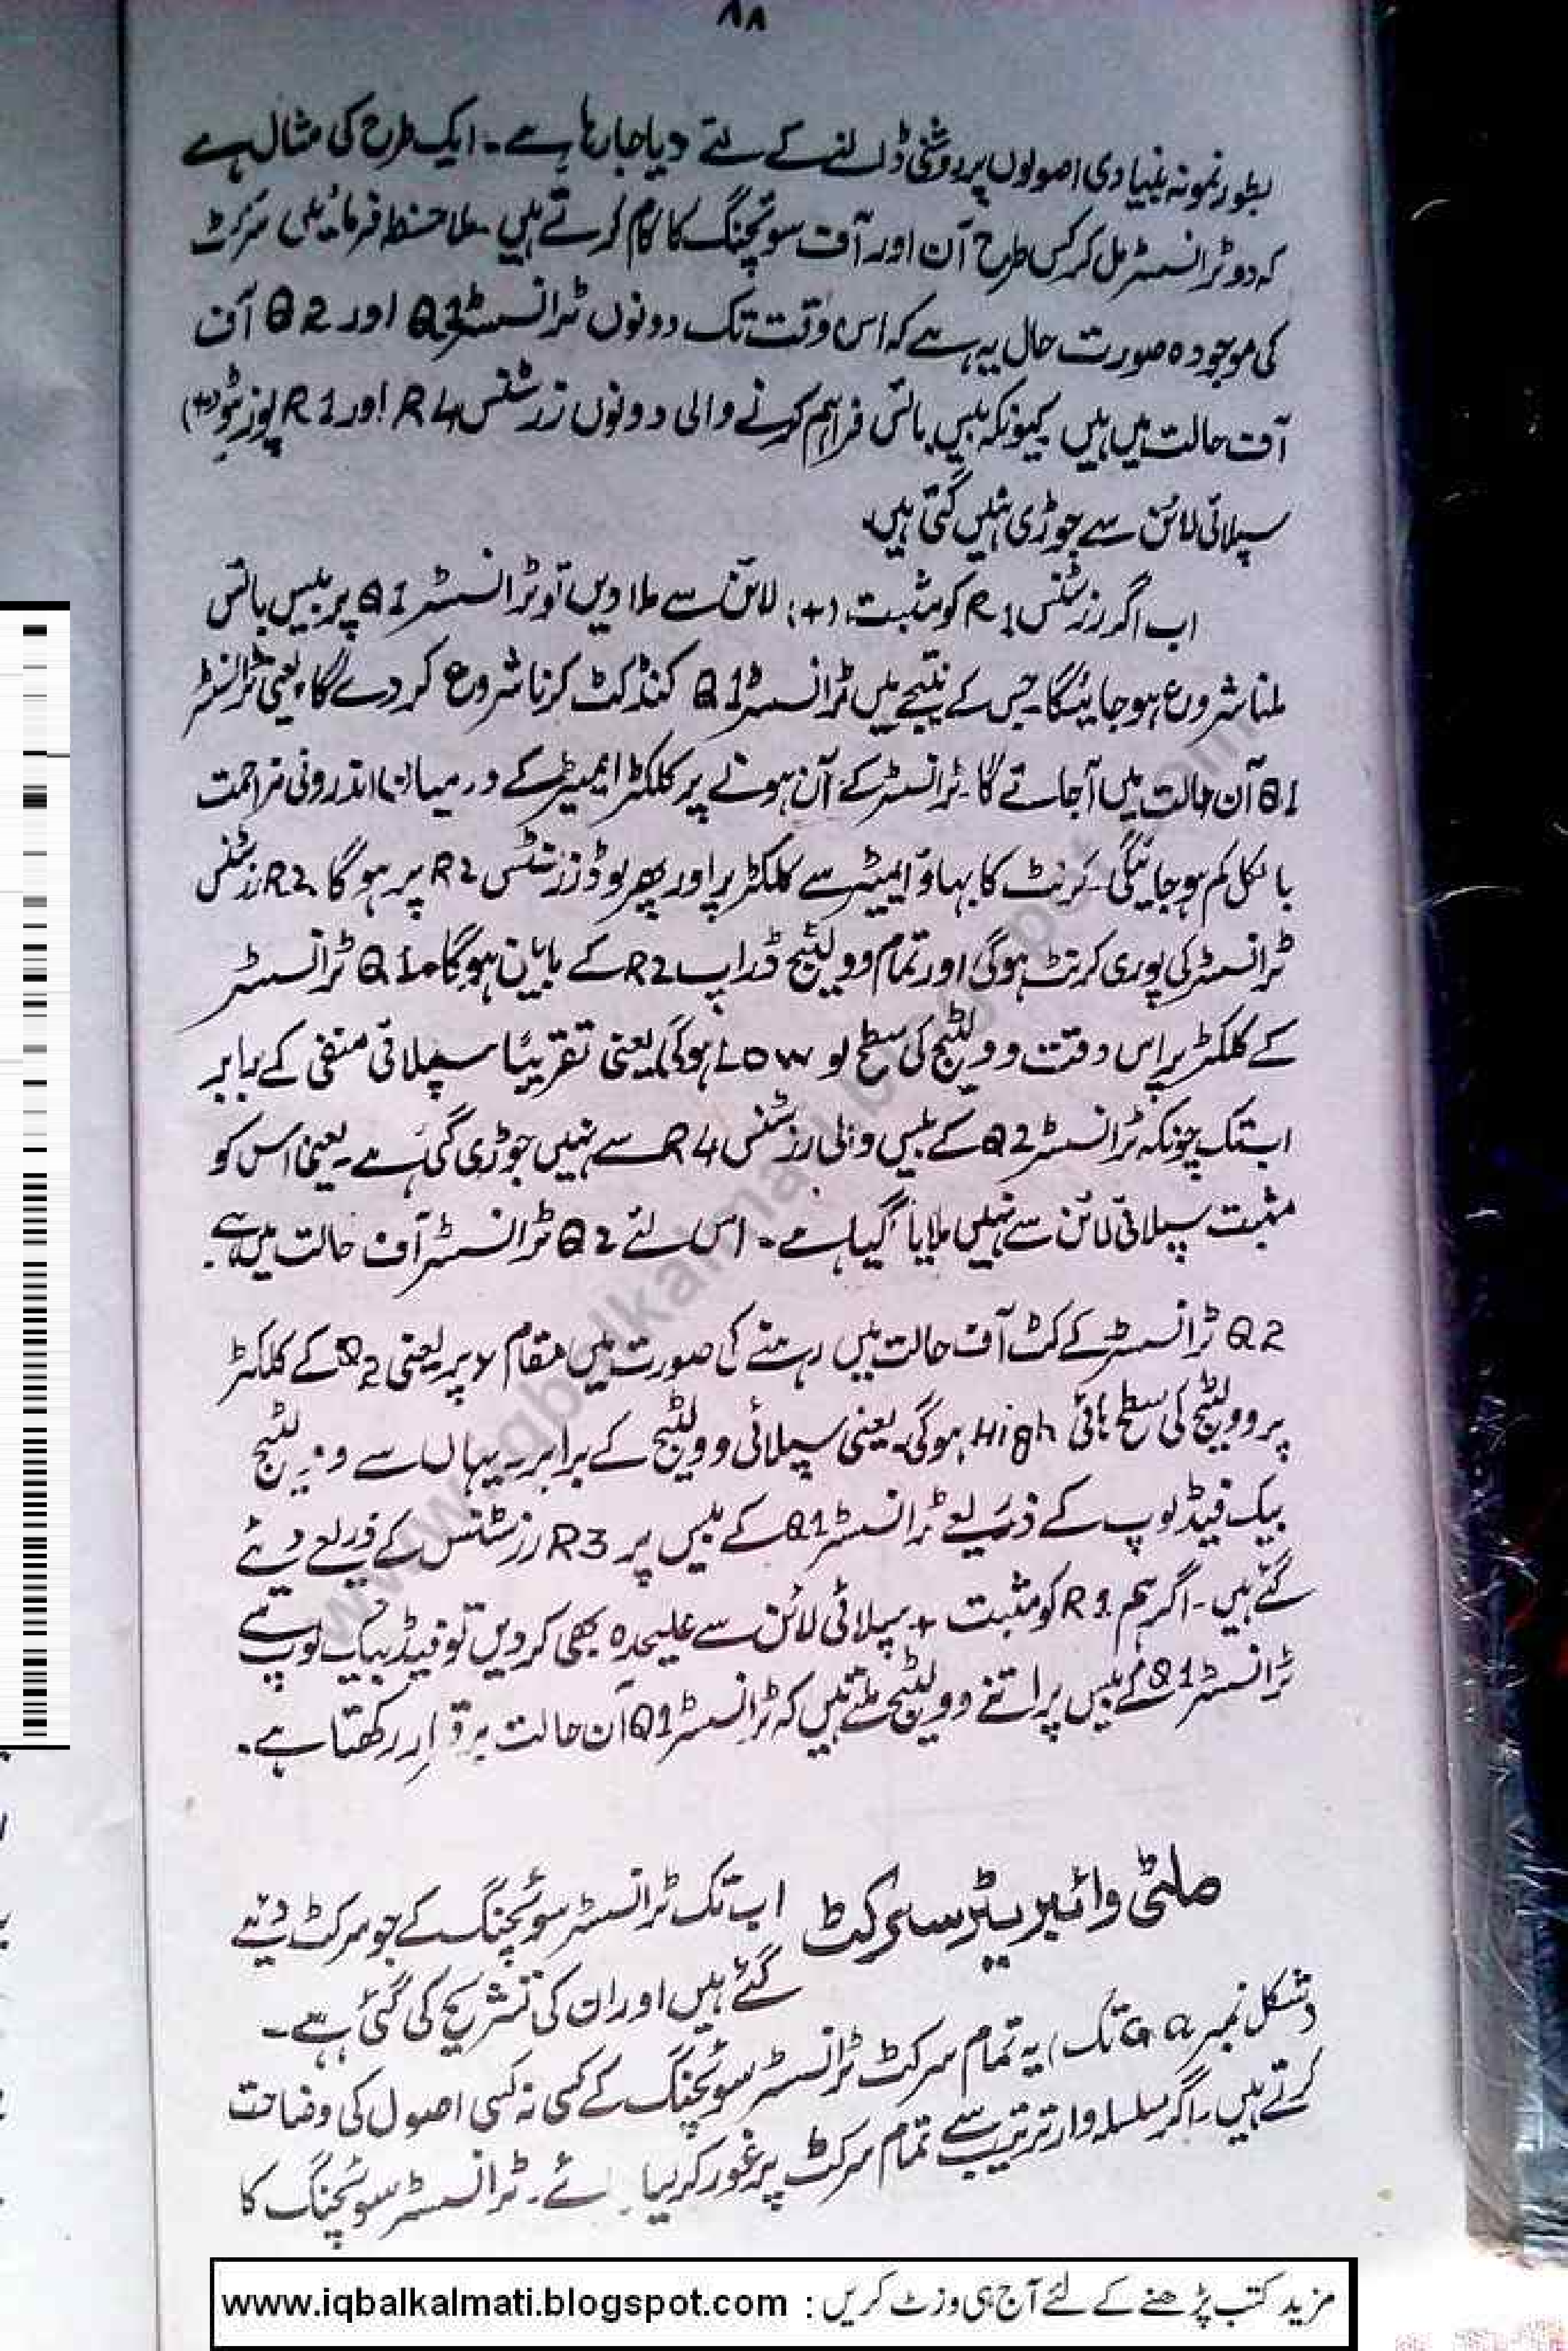 ۸۸
بطور نمونہ بنیادی اصولوں پر روشنی ڈالنے کے لئے دیا جا رہا ہے۔ ایک طرح کی مثال ہے
کہ دو ٹرانسسٹر مل کر کس طرح آن اور آف سوئچنگ کا کام کرتے ہیں۔ ملاحظہ فرمائیں سرکٹ
کی موجودہ صورت حال یہ ہے کہ اس وقت تک دونوں ٹرانسسٹر Q1 اور Q2 آف
آف حالت میں ہیں کیونکہ بیس بائس فراہم کرنے والی دونوں رزسٹنس R4 اور R1 پوزیٹو (+)
سپلائی لائن سے جوڑی نہیں گئی ہیں۔
اب اگر رزسٹنس R1 کو مثبت (+) لائن سے ملا دیں تو ٹرانسسٹر Q1 پر بیس بائس
ملنا شروع ہو جائیگا۔ جس کے نتیجے میں ٹرانسسٹر Q1 کنڈکٹ کرنا شروع کر دے گا، یعنی ٹرانسسٹر
Q1 آن حالت میں آ جائے گا۔ ٹرانسسٹر کے آن ہونے پر کلکٹر ایمیٹر کے درمیان اندرونی مزاحمت
بالکل کم ہو جائیگی۔ کرنٹ کا بہاؤ ایمیٹر سے کلکٹر پر اور پھر لوڈ رزسٹنس R2 پر ہو گا۔ R2 رزسٹنس
ٹرانسسٹر کی پوری کرنٹ ہوگی اور تمام وولٹیج ڈراپ R2 کے پایان ہوگا۔ Q1 ٹرانسسٹر
کے کلکٹر پر اس وقت وولٹیج کی سطح لو Low ہوگی۔ یعنی تقریباً سپلائی منفی کے برابر
اب تک چونکہ ٹرانسسٹر Q2 کے بیس والی رزسٹنس R4 سے نہیں جوڑی گئی ہے۔ یعنی اس کو
مثبت سپلائی لائن سے نہیں ملایا گیا ہے۔ اس لئے Q2 ٹرانسسٹر آف حالت میں ہے۔
Q2 ٹرانسسٹر کے کٹ آف حالت میں رہنے کی صورت میں مقام y پر یعنی Q2 کے کلکٹر
پر وولٹیج کی سطح ہائی High ہوگی۔ یعنی سپلائی وولٹیج کے برابر۔ یہاں سے وولٹیج
بیک فیڈ لوپ کے ذریعے ٹرانسسٹر Q1 کے بیس پر R3 رزسٹنس کے ذریعے دیئے
گئے ہیں۔ اگر ہم R1 کو مثبت + سپلائی لائن سے علیحدہ بھی کر دیں تو فیڈ بیک لوپ سے
ٹرانسسٹر Q1 کے بیس پر اتنے وولٹیج ملتے ہیں کہ ٹرانسسٹر Q1 آن حالت برقرار رکھتا ہے۔
ملٹی وائبریٹر سرکٹ اب تک ٹرانسسٹر سوئچنگ کے جو سرکٹ دیئے
گئے ہیں اور ان کی تشریح کی گئی ہے۔
(شکل نمبر a G تک) یہ تمام سرکٹ ٹرانسسٹر سوئچنگ کے کسی نہ کسی اصول کی وضاحت
کرتے ہیں۔ اگر سلسلہ وار ترتیب سے تمام سرکٹ پر غور کر لیا ۔ ٹرانسسٹر سوئچنگ کا
مزید کتب پڑھنے کے لئے آج ہی وزٹ کریں : www.iqbalkalmati.blogspot.com